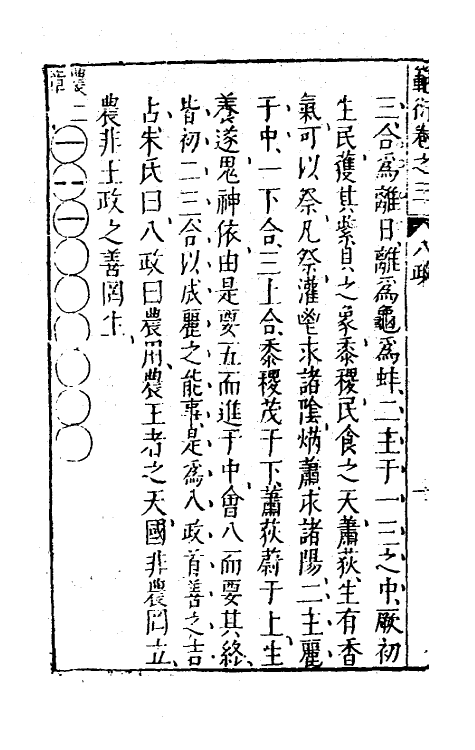 範衍卷之三 八政
三合爲離日離爲龜爲蚌二主于一三之中厥初
生民獲其紫貝之象黍稷民食之天蕭荻生有香
氣可以祭凡祭灌鬯求諸陰焫蕭求諸陽二主麗
于中一下合三上合黍稷茂于下蕭荻蔚于上生
養遂鬼神依由是要五而進于中會八而要其終
皆初二三合以成麗之能事是爲八政首善之吉
占朱氏曰八政曰農用農王者之天國非農罔立
農非王政之善罔生
農二
章